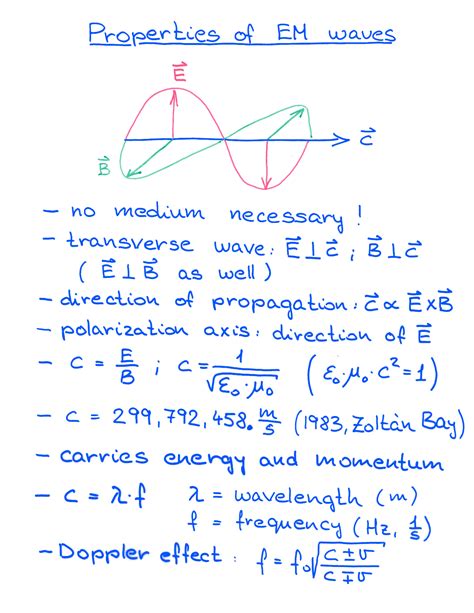 Properties of EM waves
E⃗
c⃗
B⃗
– no medium necessary !
– transverse wave: E⃗ ⊥ c⃗ ; B⃗ ⊥ c⃗
( E⃗ ⊥ B⃗ as well )
– direction of propagation: c⃗ ∝ E⃗ x B⃗
– polarization axis: direction of E⃗
– c = E/B ; c = 1/√(ε₀·μ₀) (ε₀·μ₀·c² = 1)
– c = 299,792,458 · m/s (1983, Zoltàn Bay)
– carries energy and momentum
– c = λ·f λ = wavelength (m)
f = frequency (Hz, 1/s)
– Doppler effect: f = f₀√((c ± v)/(c ∓ v))